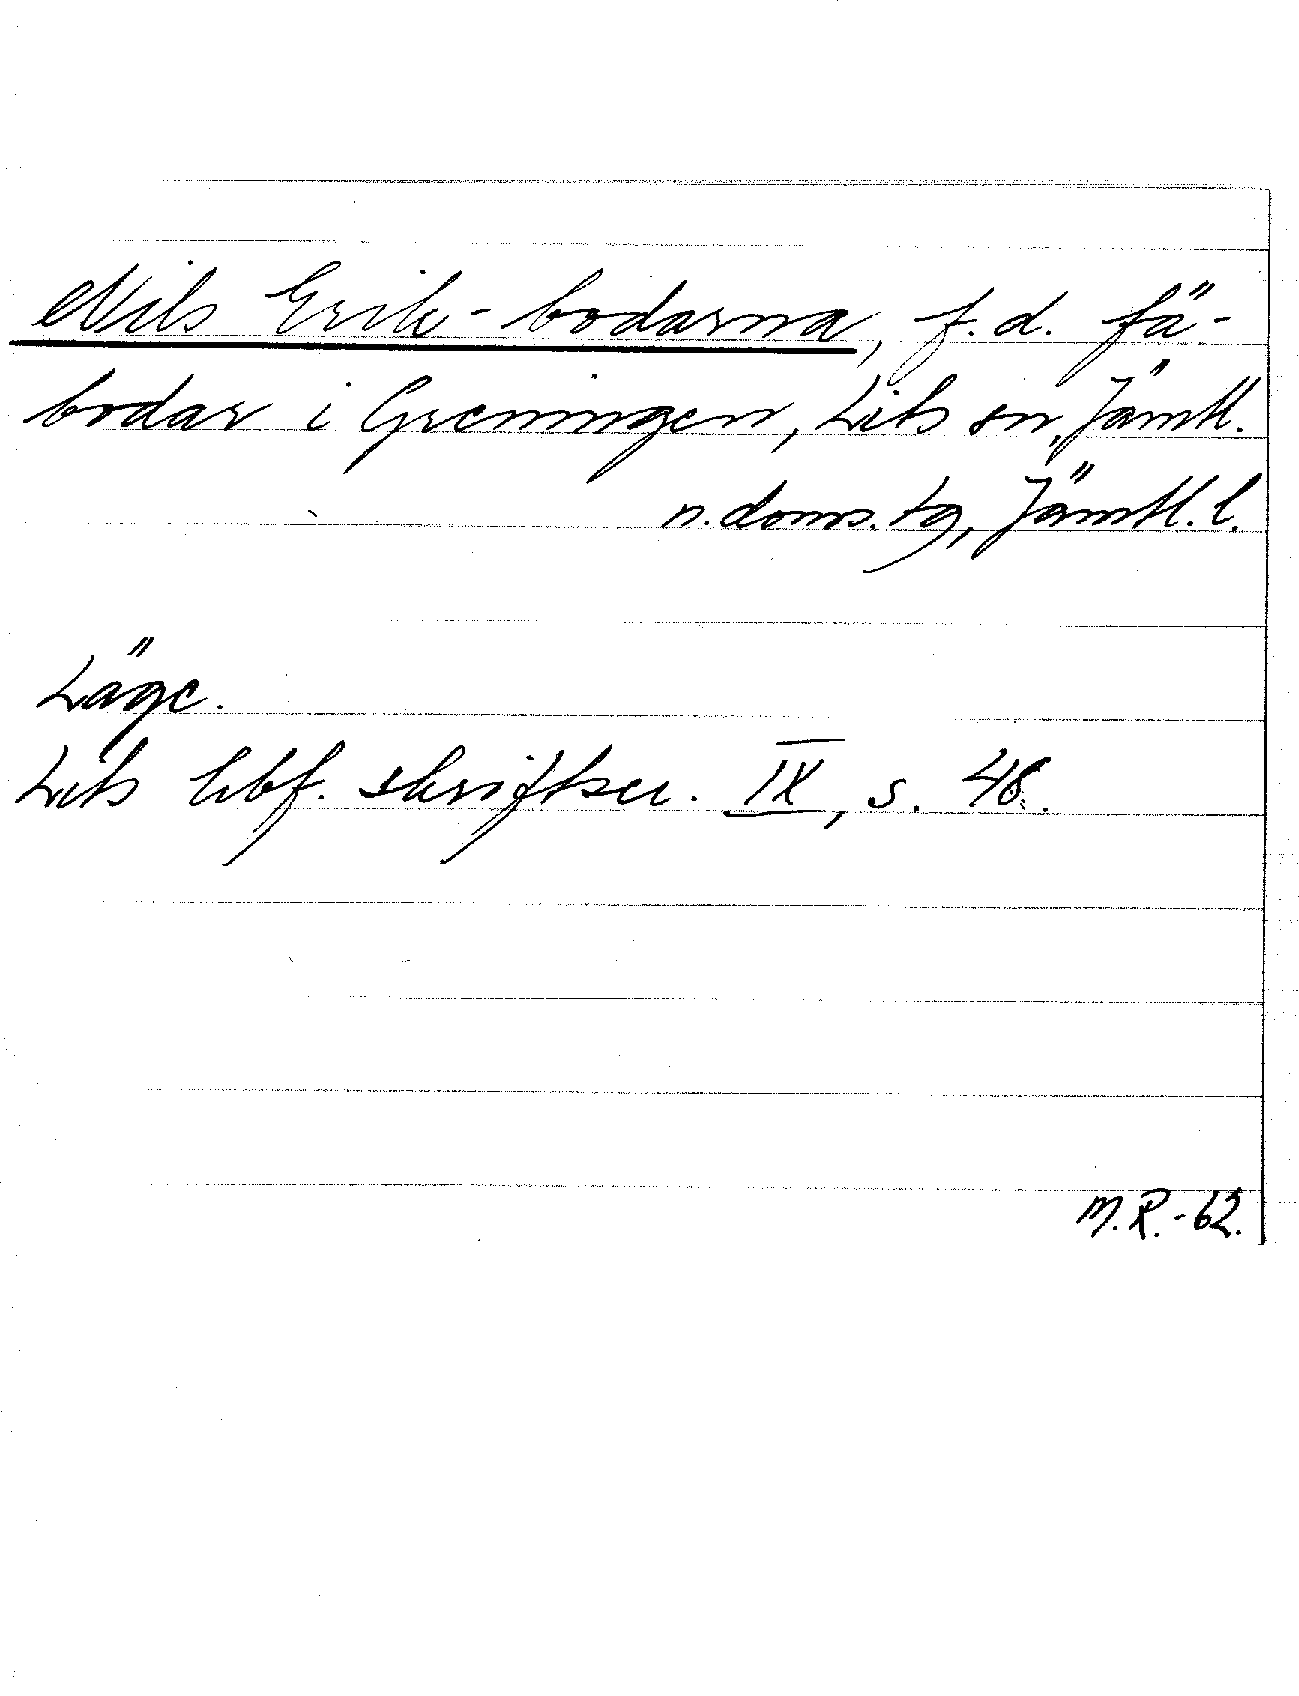 Nils Erik-bodarna, f.d. fä-
bodar i Greningen, Lits sn, Jämtl.
n. doms. tg, Jämtl. l.
Läge.
Lits hbf. skriftser. IX, s. 48.
M.R.-62.